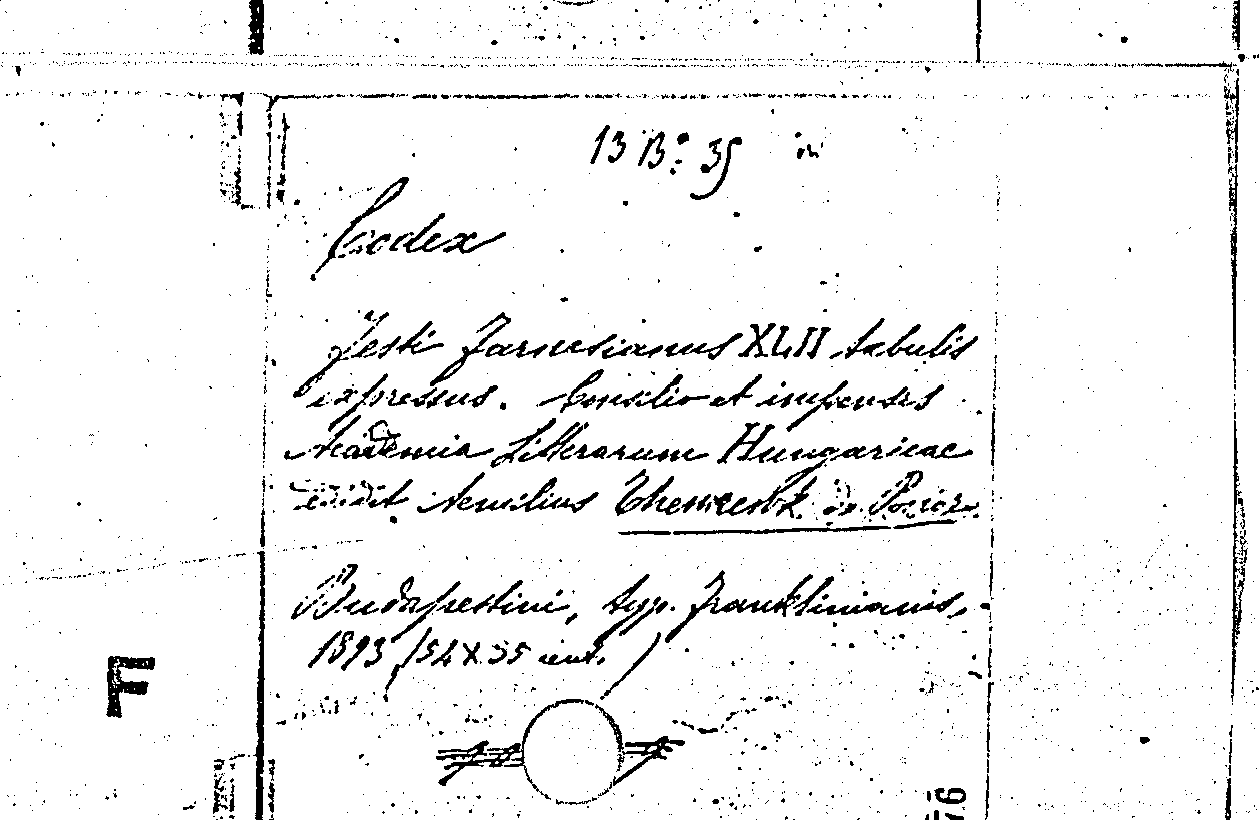 13 B: 35 in
Codex
Festi Farnesianus XLII tabulis
expressus. Consilio et impensis
Academia Litterarum Hungaricae
edidit Aemilius Thewrewk de Ponor.
Budapestini, typ. Franklinianis,
1893 (54 X 35 cent. )
F